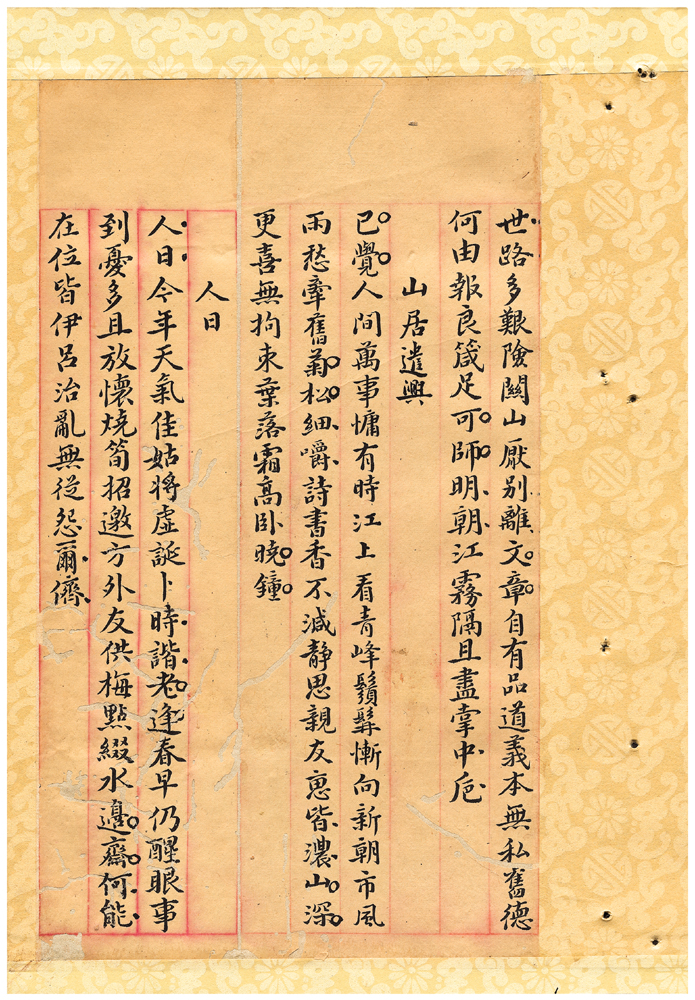 世路多艱險關山厭别離文章自有品道義本無私舊德
何由報良箴足可師明朝江霧隔且盡掌中巵
山居遣興
已覺人間萬事慵有時江上看青峰鬚髯慚向新朝市風
雨愁牽舊菊松細嚼詩書香不減靜思親友意皆濃山深
更喜無拘束葉落霜高卧曉鐘
人日
人日今年天氣佳姑將虛誕卜時諧老逢春早仍醒眼事
到憂多且放懷燒筍招邀方外友供梅點綴水邊齋何能
在位皆伊呂治亂無從怨爾儕